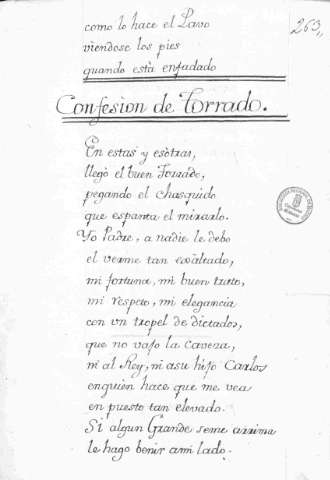 263,,
como lo hace el Pavo
viendose los pies
quando està enfadado
Confesion de Torrado.
En estas y esotras,
llegò el buen Torrado,
pegando el chasquido
que espanta el mirarlo.
Yo Padre, a nadie le debo
el verme tan exàltado,
mi fortuna, mi buen trato,
mi respeto, mi elegancia
con vn tropel de dictados,
que no vajo la caveza,
ni al Rey, ni asu hijo Carlos
enquien hace que me vea
en puesto tan elevado.
Si algun Grande seme arrima
le hago benir ami lado.